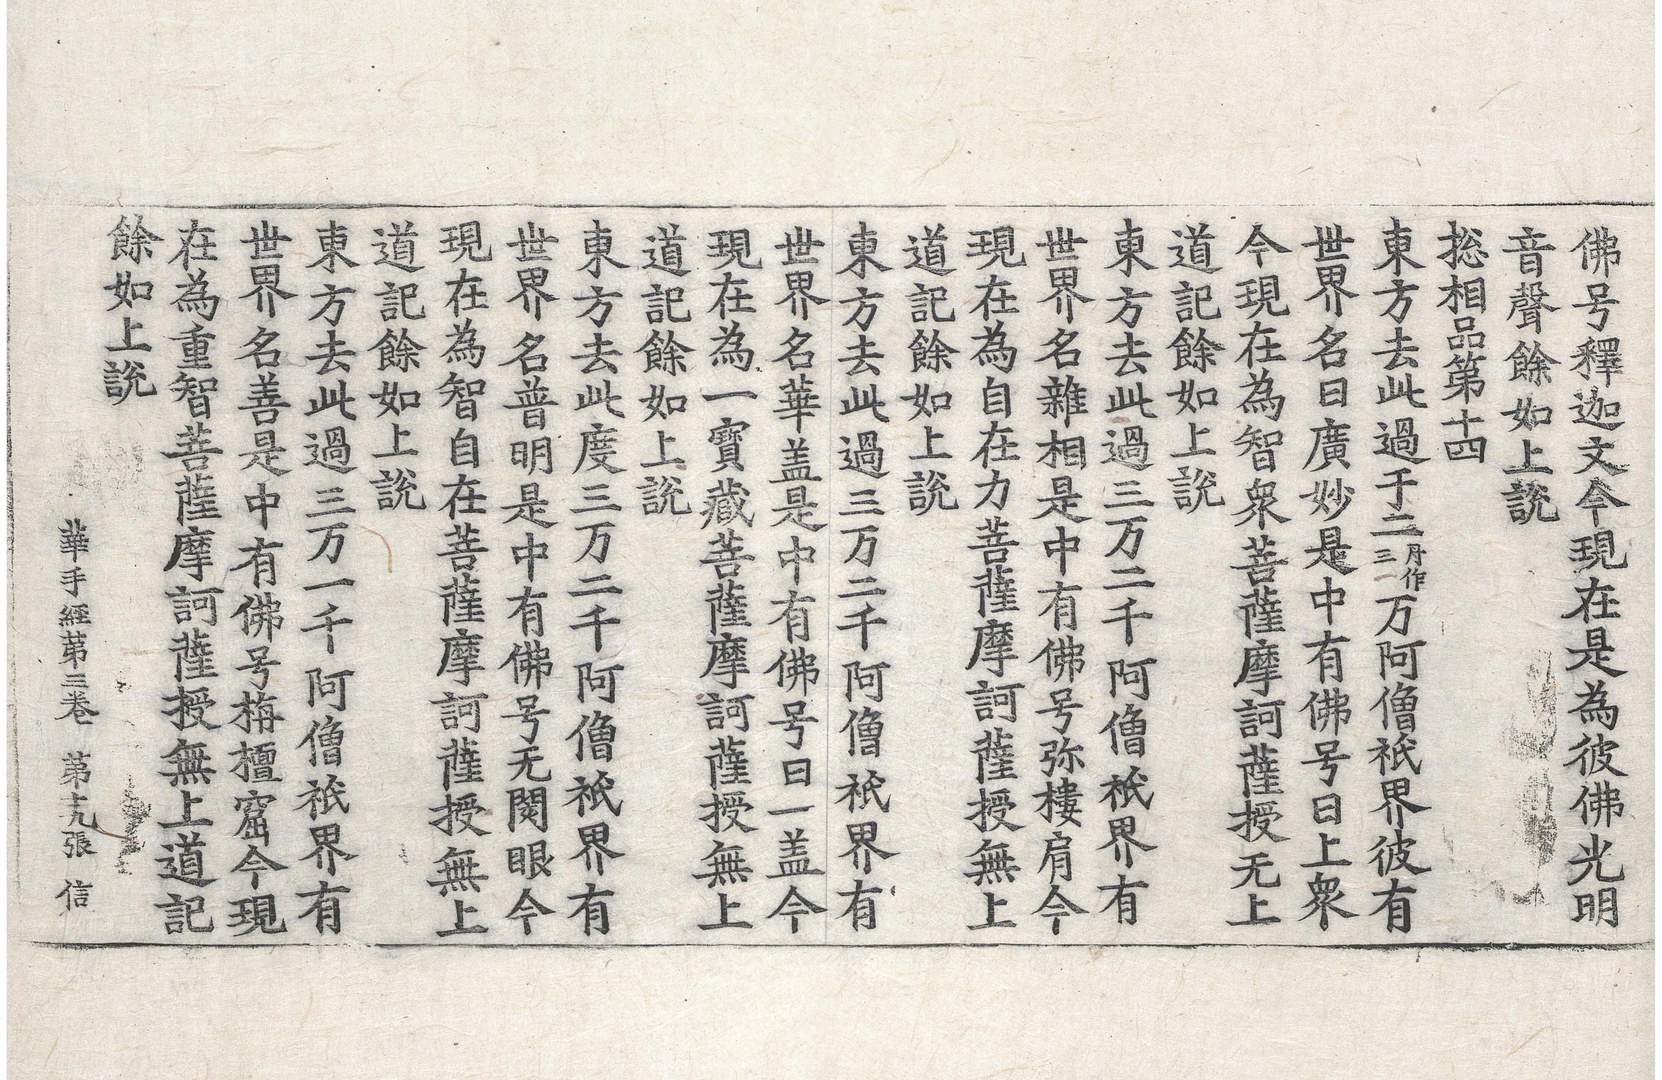 佛号釋迦文今現在是為彼佛光明
音聲餘如上說
捴相品第十四
東方去此過于二丹作三万阿僧祇界彼有
世界名曰廣妙是中有佛号曰上衆
今現在為智衆菩薩摩訶薩授无上
道記餘如上說
東方去此過三万二千阿僧祇界有
世界名雜相是中有佛号弥樓肩今
現在為自在力菩薩摩訶薩授無上
道記餘如上說
東方去此過三万二千阿僧祇界有
世界名華盖是中有佛号曰一盖今
現在為一寶藏菩薩摩訶薩授無上
道記餘如上說
東方去此度三万二千阿僧祇界有
世界名普明是中有佛号无閡眼今
現在為智自在菩薩摩訶薩授無上
道記餘如上說
東方去此過三万一千阿僧祇界有
世界名善是中有佛号栴檀窟今現
在為重智菩薩摩訶薩授無上道記
餘如上說
華手經第三卷 第十九張 信